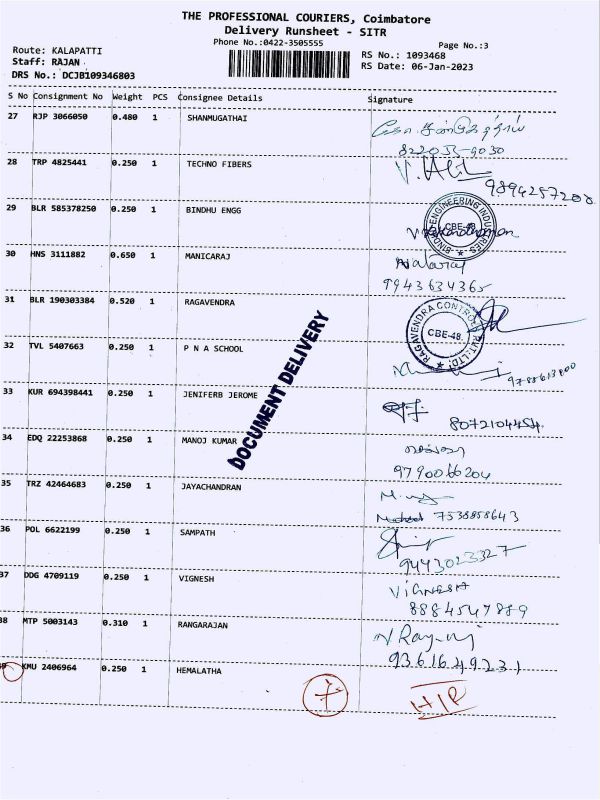 THE PROFESSIONAL COURIERS, Coimbatore
Delivery Runsheet - SITR
Phone No.:0422-3505555
Page No.:3
Route: KALAPATTI
Staff: RAJAN
DRS No.: DCJB109346803
RS No.: 1093468
RS Date: 06-Jan-2023
S No Consignment No Weight PCS Consignee Details Signature
27 RJP 3066050 0.480 1 SHANMUGATHAI
28 TRP 4825441 0.250 1 TECHNO FIBERS
9894257200
29 BLR 585378250 0.250 1 BINDHU ENGG
BINDHU ENGINEERING INDUSTRIES CBE-48
30 HNS 3111882 0.650 1 MANICARAJ
Nataraj
9943634365
31 BLR 190303384 0.520 1 RAGAVENDRA
RAGAVENDRA CONTROLS PVT. LTD. CBE-48.
32 TVL 5407663 0.250 1 P N A SCHOOL
9788613800
DOCUMENT DELIVERY
33 KUR 694398441 0.250 1 JENIFERB JEROME
8072104454
34 EDQ 22253868 0.250 1 MANOJ KUMAR
9790066204
35 TRZ 42464683 0.250 1 JAYACHANDRAN
7538858643
36 POL 6622199 0.250 1 SAMPATH
9443023327
37 DDG 4709119 0.250 1 VIGNESH
VIGNESH
8884547889
38 MTP 5003143 0.310 1 RANGARAJAN
9361649231
39 KMU 2406964 0.250 1 HEMALATHA
7
H/P